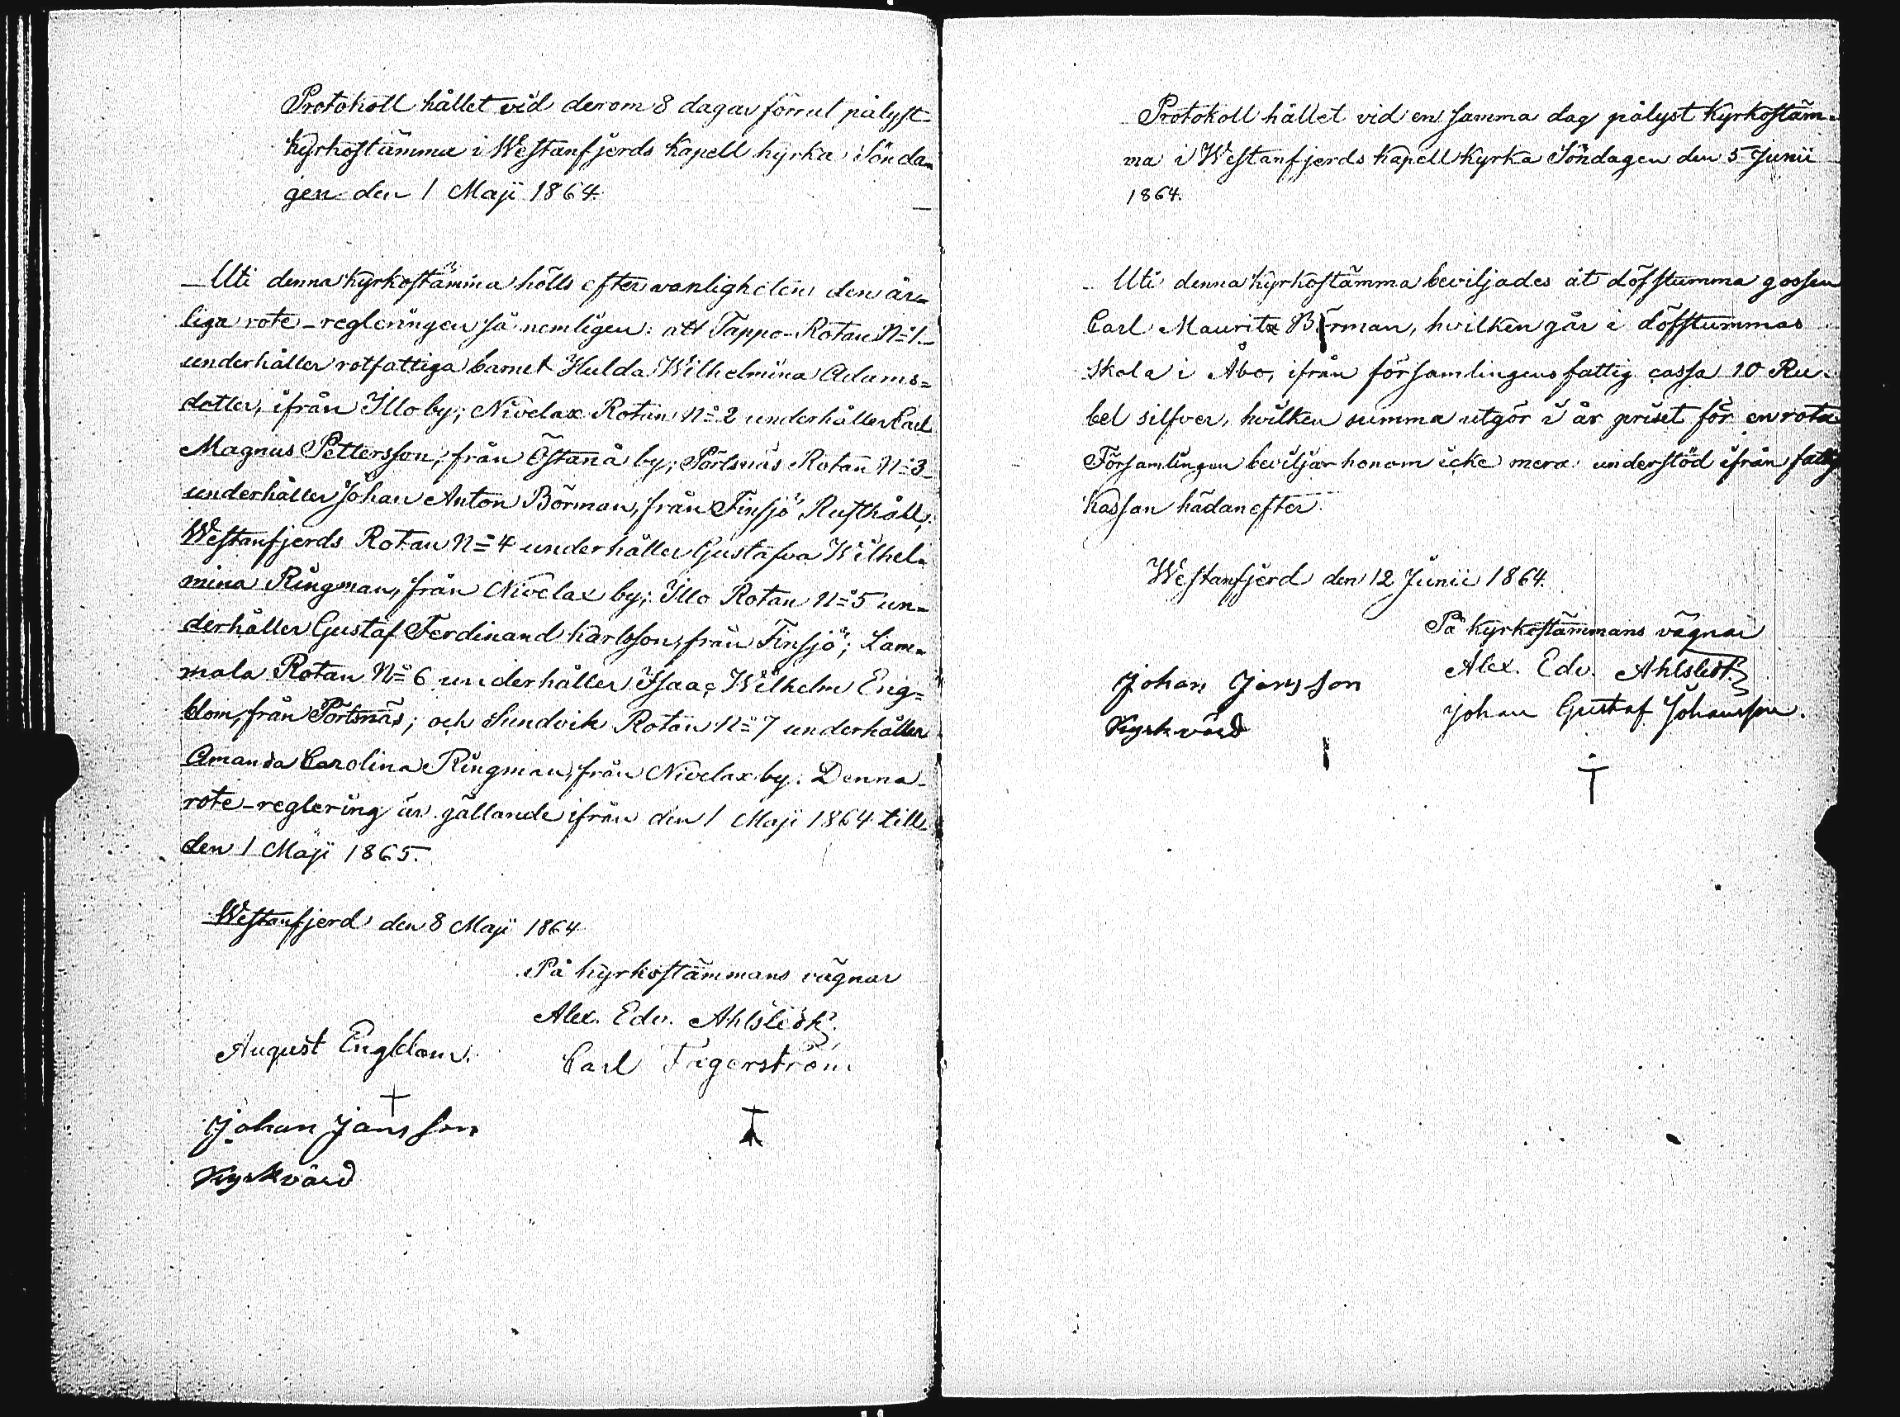 Protokoll hållet vid derom 8 dagar förrut pålyst
Kyrkostämma i Westanfjerds Kapell kyrka Sönda-
gen den 1 Maji 1864.
Uti denna Kyrkostämma hölls efter vanligheten den år-
liga rote-regleringen så nemligen: att Tappo-Rotan No 1
underhåller rotfattiga barnet Hulda Wilhelmina Adams-
dotter, ifrån Illo by; Nivelax Rotan No 2 underhåller Carl
Magnus Pettersson, från Östanå by; Pörtsnäs Rotan No 3
underhåller Johan Anton Börman, från Finsjö Rusthåll;
Westanfjerds Rotan No 4 underhåller Gustafva Wilhel-
mina Ringman, från Nivelax by; Illo Rotan No 5 un-
derhåller Gustaf Ferdinand Karlsson, från Finsjö; Lam-
mala Rotan No 6 underhåller Isaac Wilhelm Eng-
blom, från Pörtsnäs; och Sundvik Rotan No 7 underhåller
Amanda Carolina Ringman, från Nivelax by. Denna
rote-reglering är gällande ifrån den 1 Maji 1864 till
den 1 Maji 1865.
Westanfjerd den 8 Maji 1864
På kyrkostämmans vägnar
Alex. Edv. Ahlstedt
August Engblom.
Carl Fagerström
Johan Jansson
Kyrkvärd
Protokoll hållet vid en samma dag pålyst Kyrkostäm-
ma i Westanfjerds Kapell Kyrka Söndagen den 5 Junii
1864.
Uti denna Kyrkostämma beviljades åt döfstumma gossen
Carl Mauritz Börman, hvilken går i döfstummas
Skola i Åbo, ifrån församlingens fattig cassa 10 Ru-
bel silfver, hvilken summa utgör i år priset för en rota
Församlingen beviljar honom icke mera understöd ifrån fattig
Kassan hädanefter.
Westanfjerd den 12 Junii 1864.
På kyrkostämmans vägnar
Alex. Edv. Ahlstedt
Johan Jansson
Johan Gustaf Johansson.
Kyrkvärd